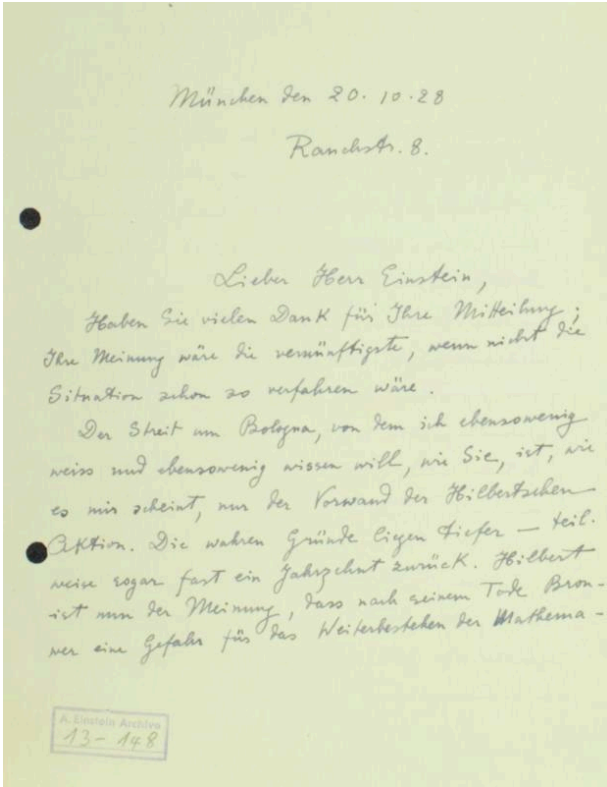 München den 20.10.28
Rauchstr. 8.
Lieber Herr Einstein,
Haben Sie vielen Dank für Ihre Mitteilung;
Ihre Meinung wäre die vernünftigste, wenn nicht die
Situation schon so verfahren wäre.
Der Streit um Bologna, von dem ich ebensowenig
weiss und ebensowenig wissen will, wie Sie, ist, wie
es mir scheint, nur der Vorwand der Hilbertschen
Aktion. Die wahren Gründe liegen tiefer — teil-
weise sogar fast ein Jahrzehnt zurück. Hilbert
ist nun der Meinung, dass nach seinem Tode Brou-
wer eine Gefahr für das Weiterbestehen der Mathema-
A. Einstein Archive
13-148